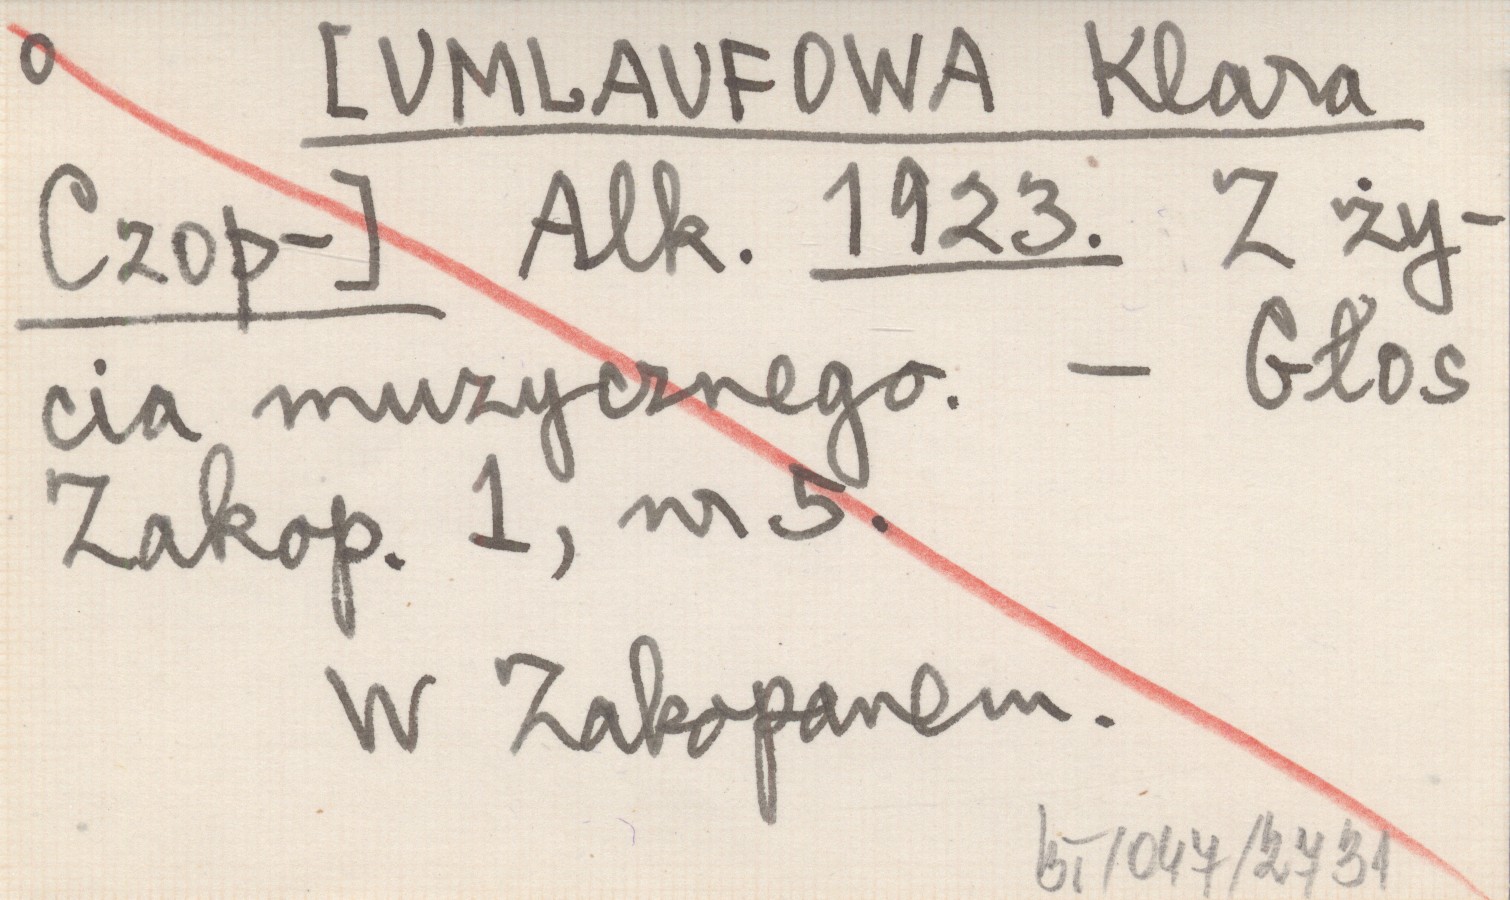 o [UMLAUFOWA Klara
Czop-] Alk. 1923. Z ży-
cia muzycznego. – Głos
Zakop. 1, nr 5.
W Zakopanem.
bī/047/2731